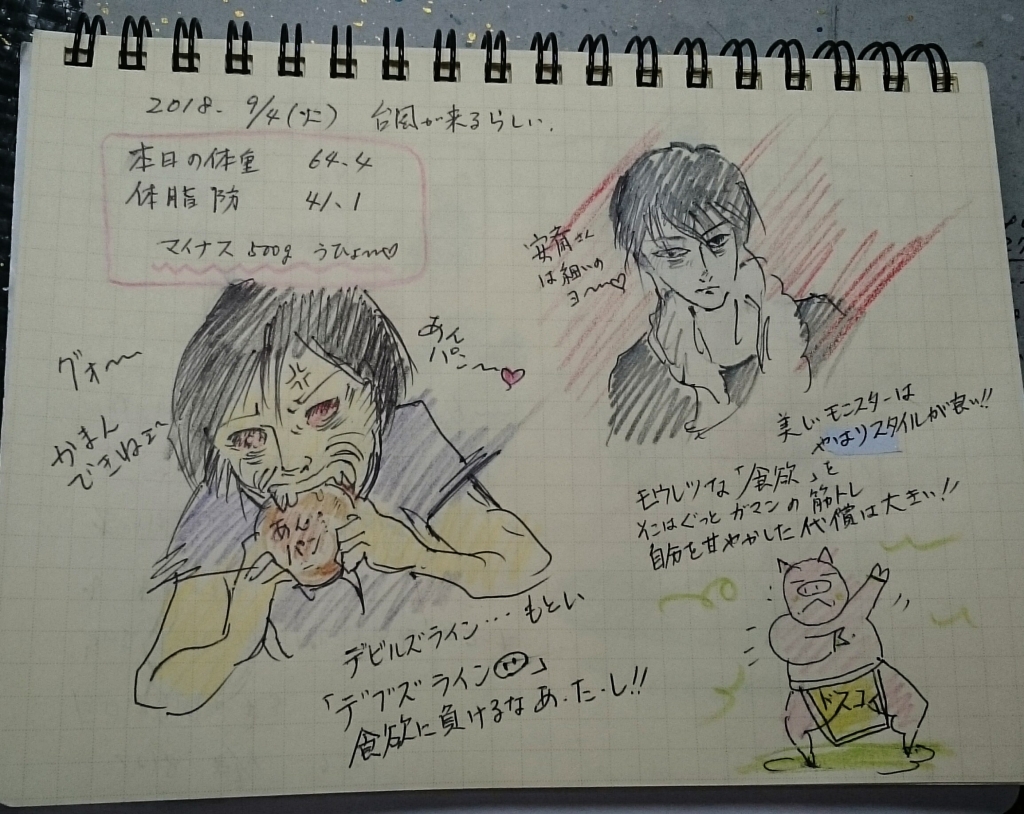 2018. 9/4(火) 台風が来るらしい.
本日の体重 64.4
体脂防 41.1
マイナス 500g うひょ〜♡
安斎さん
は細いの
ヨ〜♡
あん
パン〜♡
グォ〜
かまん
できねェ〜
あん
パン
美しいモンスターは
やはりスタイルが良い!!
モウレツな「食欲」を
そこはぐっとガマンの筋トレ
自分を甘やかした代償は大きい!!
デビルズライン…もとい
「デブズライン」
食欲に負けるなあ・た・し!!
B.
ドスコイ